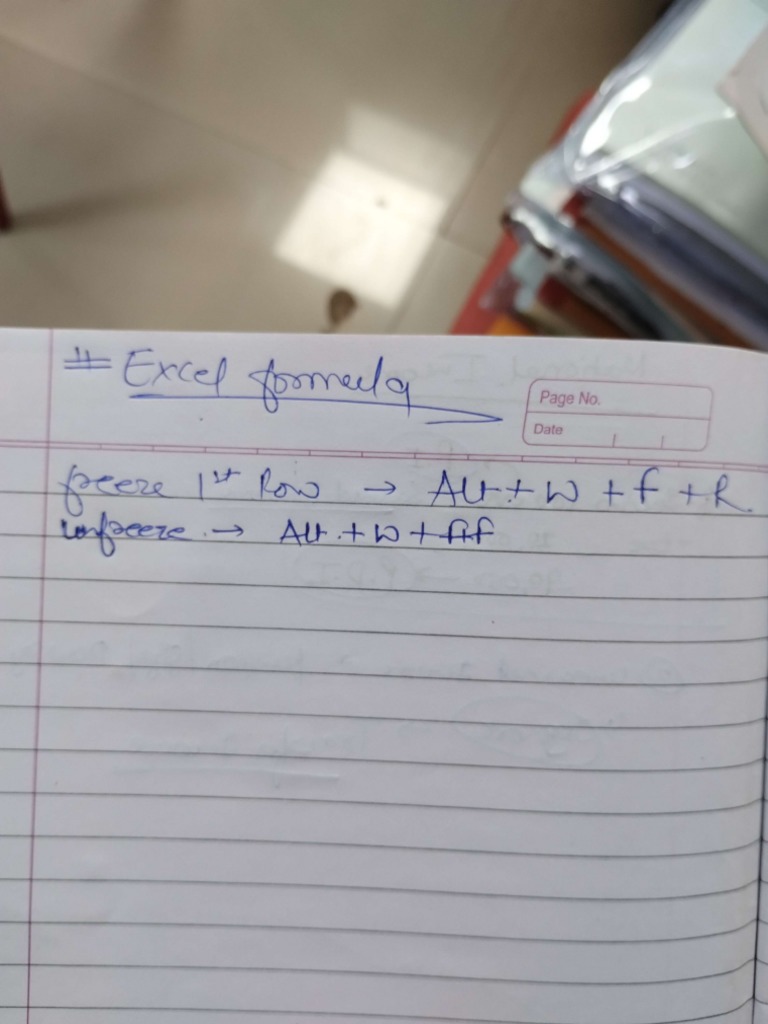 # Excel formula
Page No.
Date
freeze 1st Row → Alt + W + f + R.
unfreeze. → Alt. + W + f+f